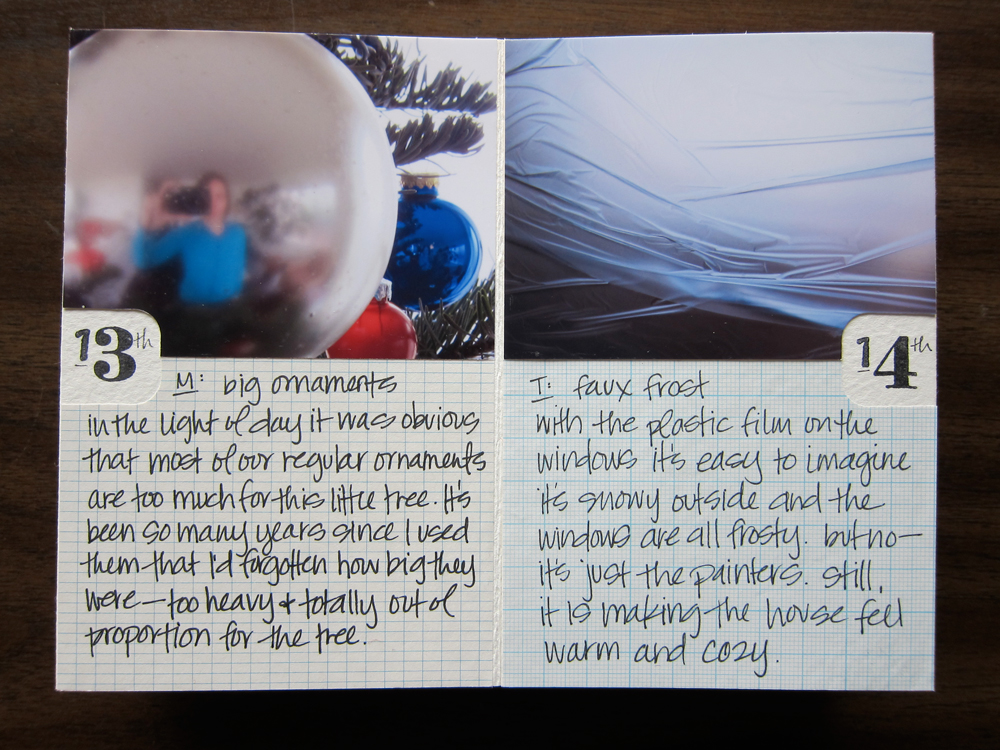 13th
M: big ornaments
in the light of day it was obvious
that most of our regular ornaments
are too much for this little tree. It's
been so many years since I used
them that I'd forgotten how big they
were—too heavy & totally out of
proportion for the tree.
14th
T: faux frost
with the plastic film on the
windows it's easy to imagine
it's snowy outside and the
windows are all frosty. but no—
it's just the painters. still,
it is making the house feel
warm and cozy.